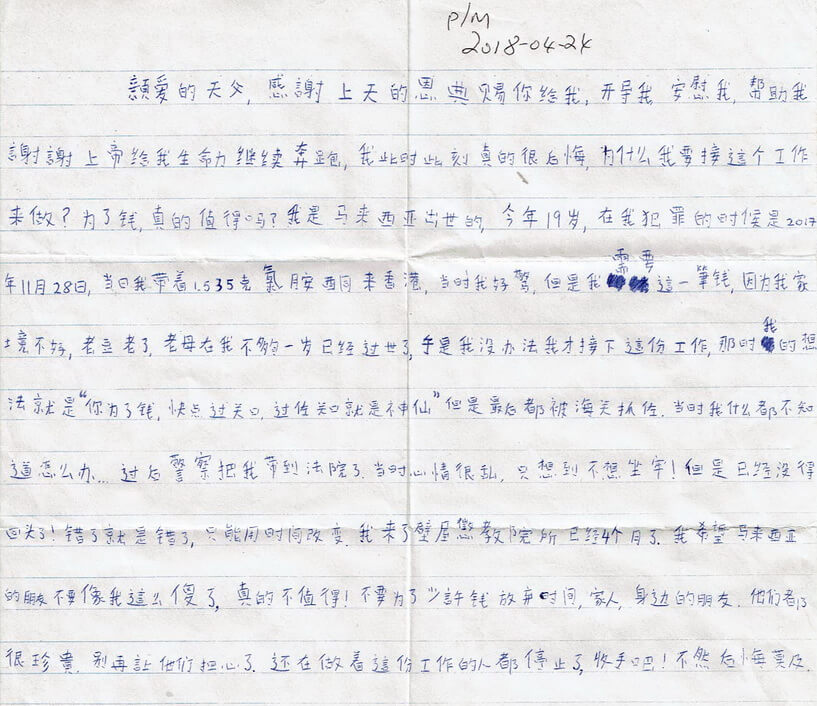 P/M
2018-04-24
親爱的天父, 感謝上天的恩典赐你给我, 开导我, 安慰我, 帮助我
謝謝上帝给我生命力继续奔跑, 我此时此刻真的很后悔, 为什么我要接這个工作
来做? 为了钱, 真的值得吗? 我是马来西亚出世的, 今年19岁, 在我犯罪的时候是2017
年11月28日, 当日我带着1.535克氯胺酉同来香港, 当时我好驚, 但是我需要這一筆钱, 因为我家
境不好, 老豆老了, 老母在我不夠一岁已经过世了, 于是我没办法我才接下這份工作, 那时我的想
法就是“你为了钱, 快点过关口, 过佐关口就是神仙” 但是最后都被海关抓佐. 当时我什么都不知
道怎么办... 过后警察把我带到法院了. 当时心情很乱, 只想到不想坐牢! 但是已经没得
回头了! 错了就是错了, 只能用时间改变. 我来了壁屋懲教院所已经4个月了. 我希望马来西亚
的朋友不要像我這么傻了, 真的不值得! 不要为了少許钱放弃时间, 家人, 身边的朋友. 他们都
很珍貴. 别再讓他们担心了. 还在做着這份工作的人都停止了, 收手吧! 不然后悔莫及.